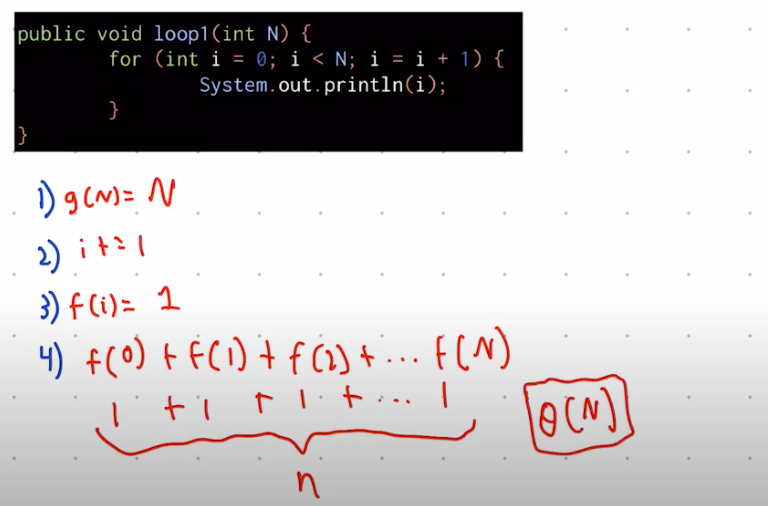 public void loop1(int N) {
for (int i = 0; i < N; i = i + 1) {
System.out.println(i);
}
}
1) g(N)= N
2) i += 1
3) f(i)= 1
4) f(0) + f(1) + f(2) + ... f(N)
1 + 1 + 1 + ... 1
θ(N)
n